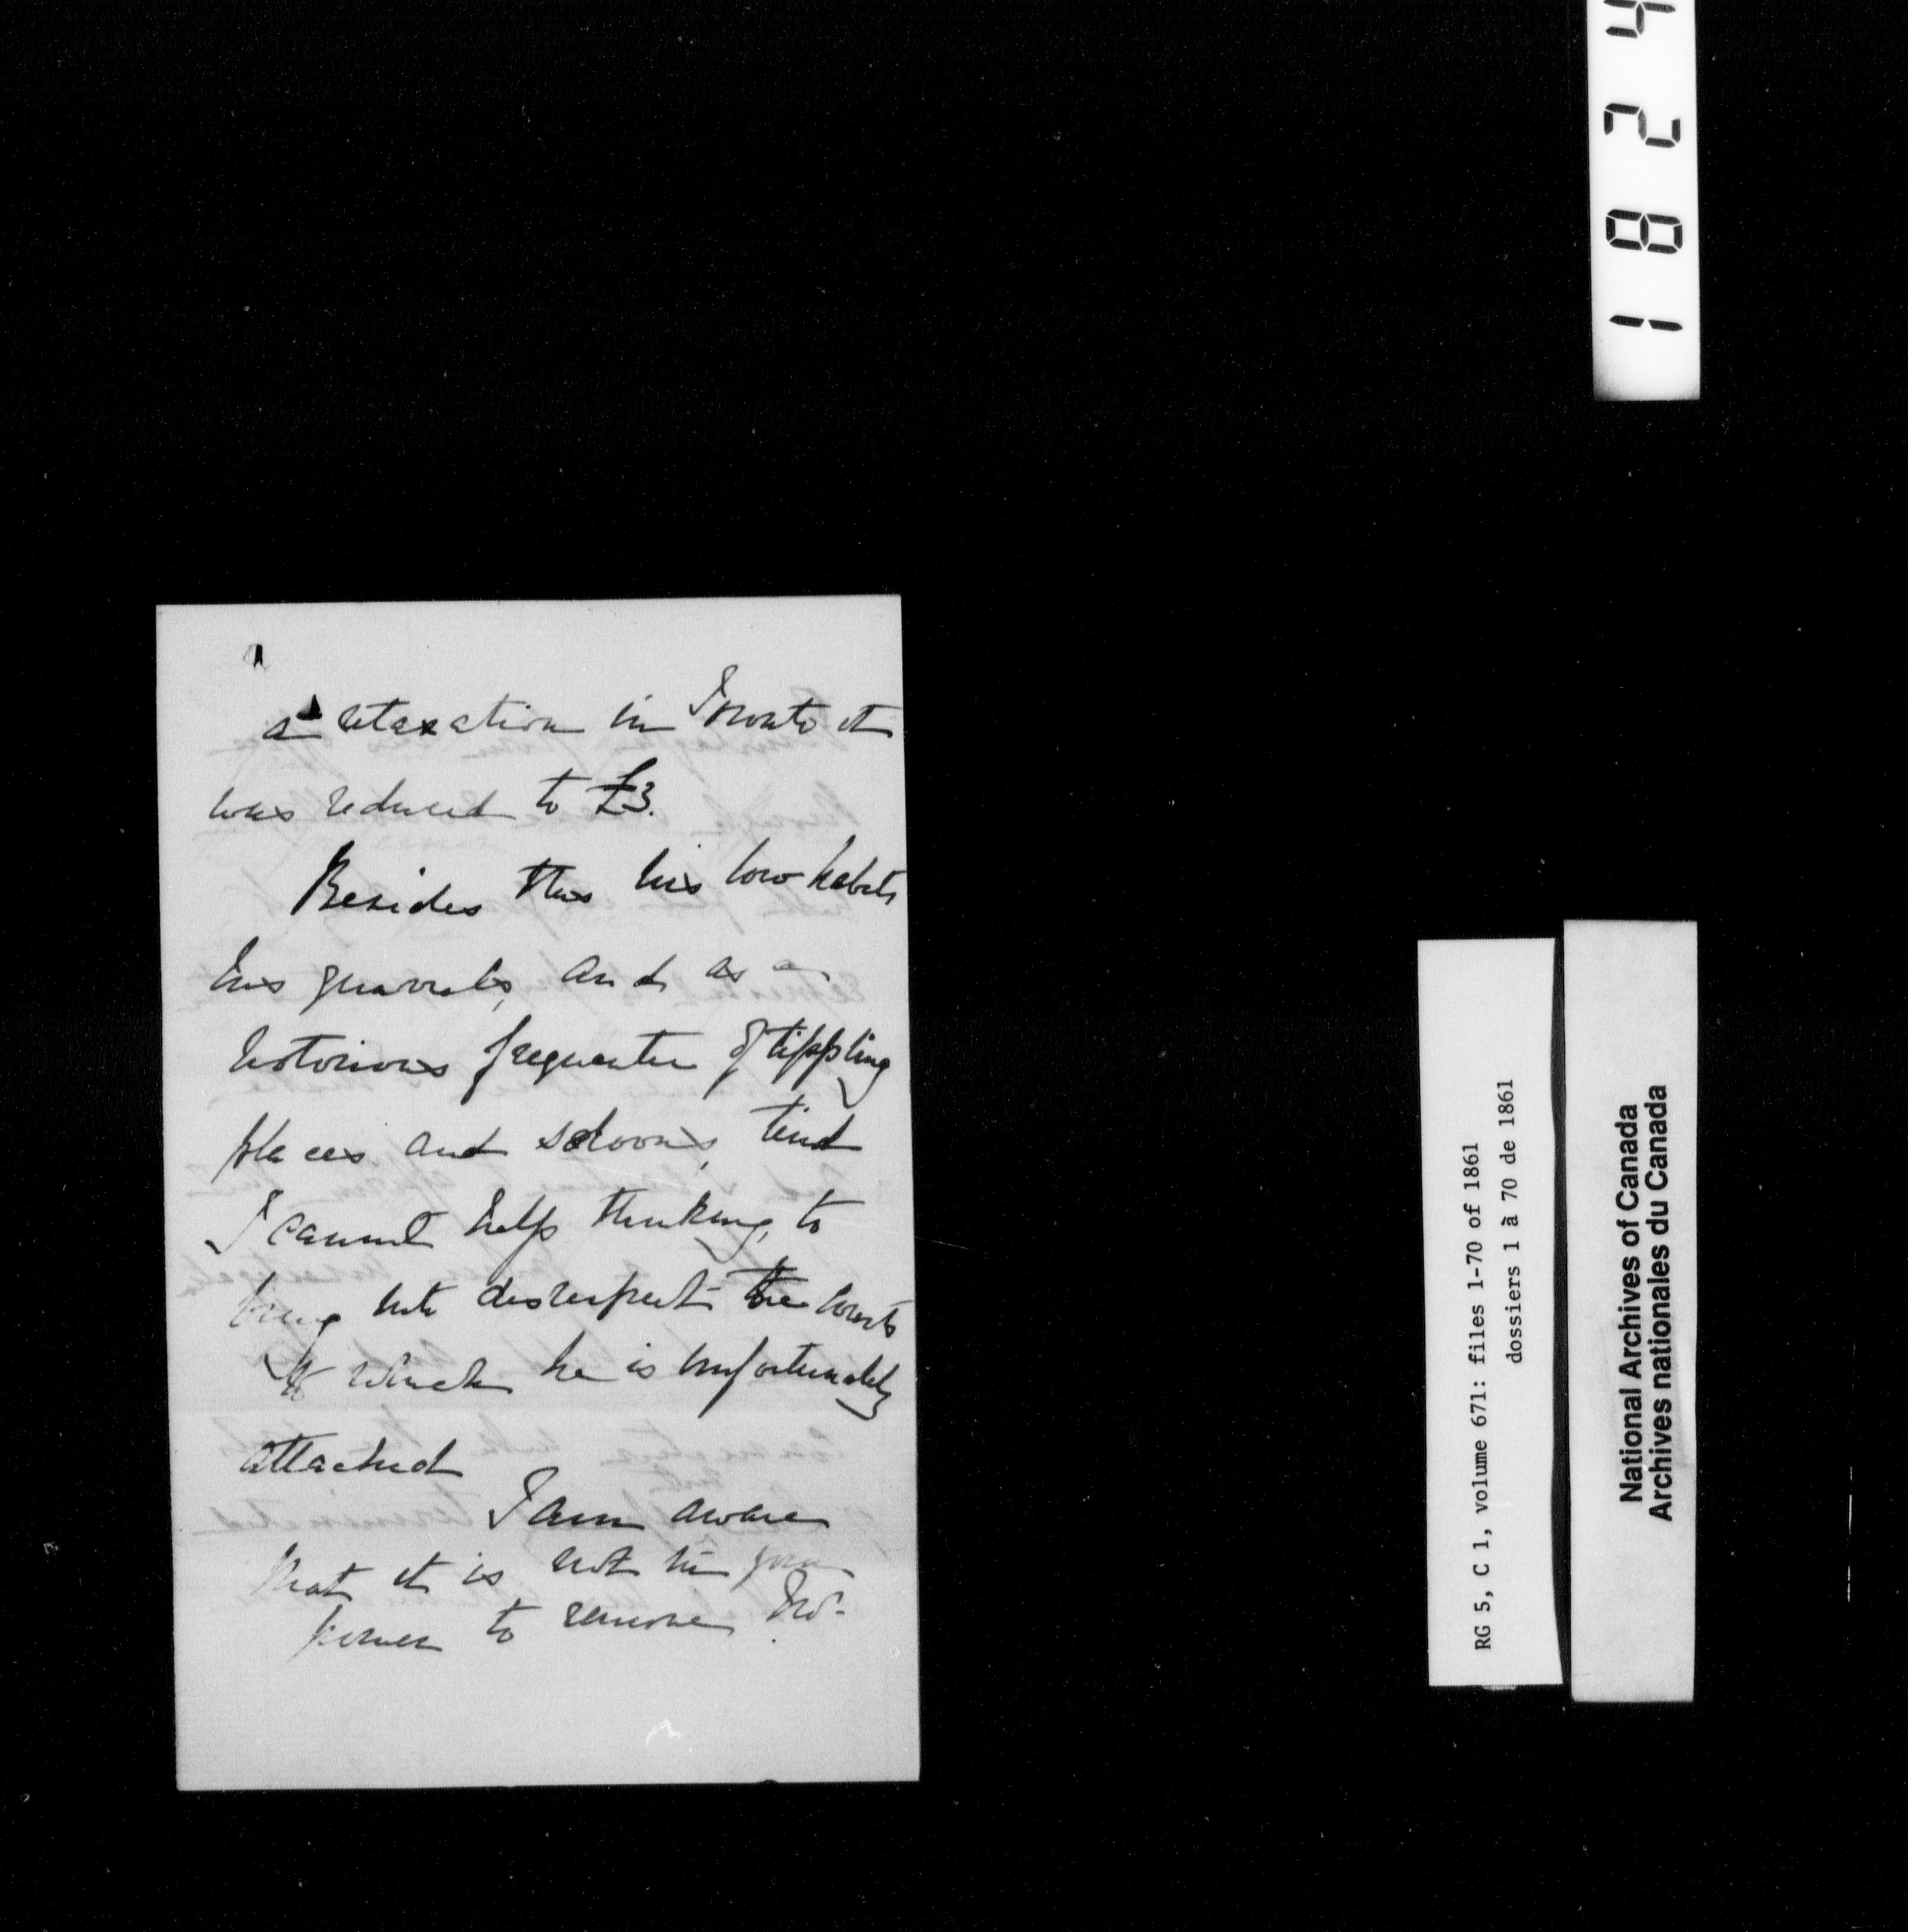 a retaxation in Toronto it
was reduced to £3.
Besides this his low habits
his quarrels, and as a
notorious frequenter of tippling
places and saloons, tend
I cannot help thinking, to
bring into disrespect the Courts
to which he is unfortunately
attached
I am aware
that it is not in your
power to remove
1 8 2 4
RG 5, C 1, volume 671: files 1-70 of 1861
dossiers 1 à 70 de 1861
National Archives of Canada
Archives nationales du Canada